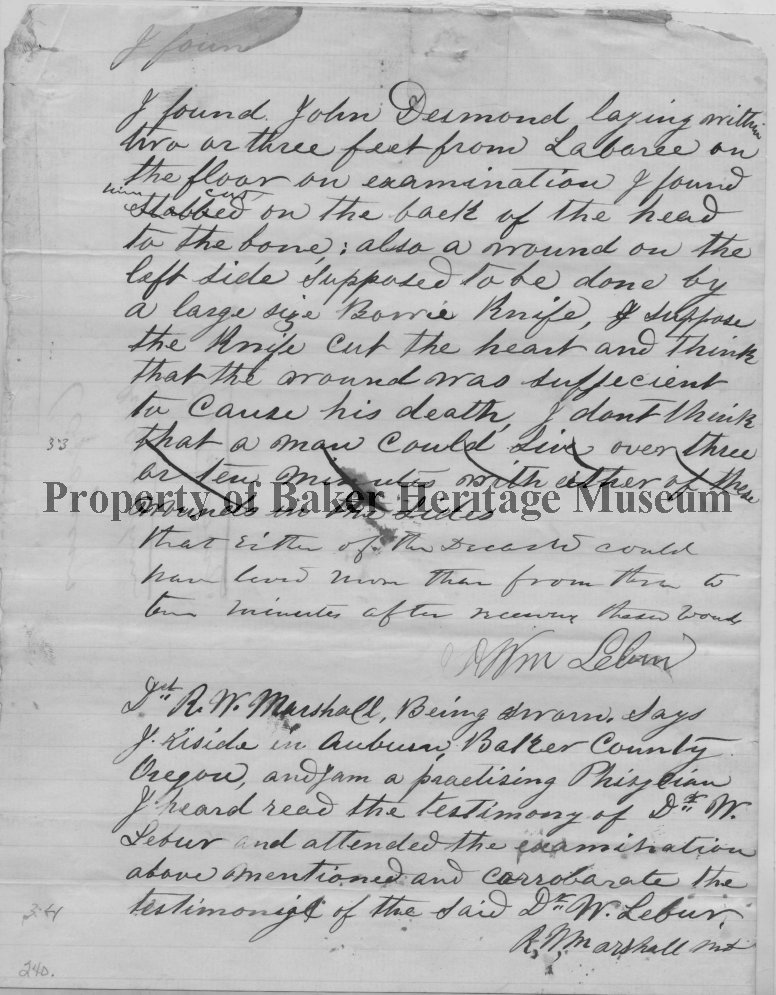 I foun
I found John Desmond laying within
two or three feet from Laboree on
the floor on examination I found
him cut
stabbed on the back of the head
to the bone; also a wound on the
left side supposed to be done by
a large size Bowie Knife, I suppose
the Knife cut the heart and think
that the wound was suffecient
to cause his death, I dont think
33
that a man could live over three
or ten minutes with either of these
Property of Baker Heritage Museum
wounds in the sides
that Either of the Deceased could
have lived more than from three to
ten minutes after receiving these wounds
Wm Lebur
Dr R. W. Marshall, Being sworn, Says
I riside in Auburn, Baker County
Oregon, and I am a practising Phizycian
I heard read the testimony of Dr W.
Lebur and attended the examination
above mentioned and carrobarate the
34
testimony of the said Dr W. Lebur,
R, W, Marshall MD
240.